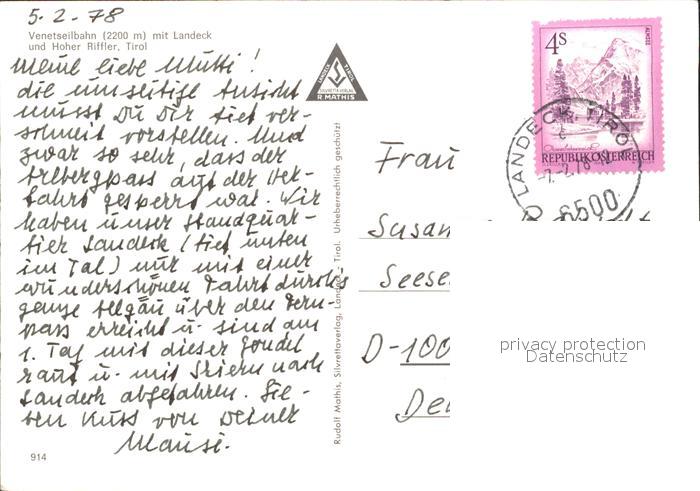 5.2.78
Venetseilbahn (2200 m) mit Landeck
und Hoher Riffler, Tirol
Meine liebe Mutti!
die umseitige Ansicht
musst Du Dir tief ver-
schneit vorstellen. Und
zwar so sehr, dass der
Arlbergpass auf der Her-
fahrt gesperrt war. Wir
haben unser Standquar-
tier Landeck (tief unten
im Tal) nur mit einer
wunderschönen Fahrt durchs
ganze Allgäu über den Fern-
pass erreicht u. sind am
1. Tag mit dieser Gondel
rauf u. mit Skiern nach
Landeck abgefahren. Lie-
ben Kuss von Deiner
Mausi.
914
LANDECK TIROL
SILVRETTA-VERLAG
R. MATHIS
Rudolf Mathis, Silvrettaverlag, Landeck - Tirol. Urheberrechtlich geschützt!
4S
ALMSEE
REPUBLIK ÖSTERREICH
LANDECK, TIROL
-7.-2.78
6500
Frau
Susan
Seese
D-100
privacy protection
Datenschutz